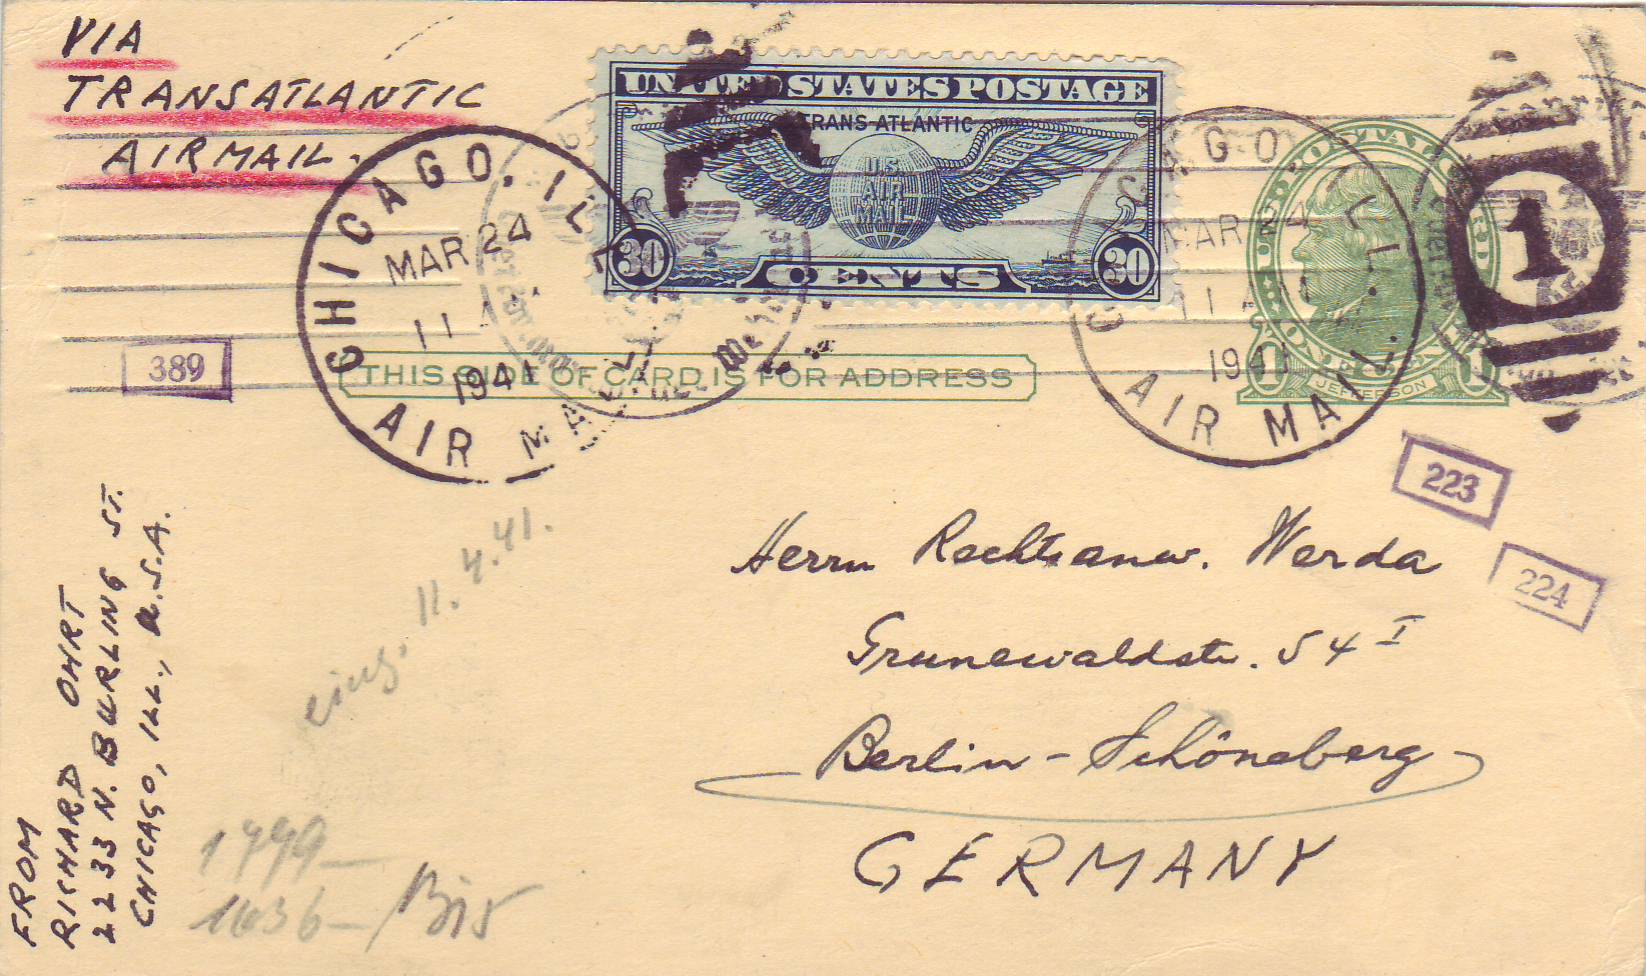 VIA
TRANSATLANTIC
AIRMAIL.
UNITED STATES POSTAGE
TRANS-ATLANTIC
U.S.
AIR
MAIL
30 CENTS 30
CHICAGO, ILL.
MAR 24
11 A
1941
AIR MAIL
CHICAGO ILL.
MAR 24
11 AM
1941
AIR MAIL
U.S. POSTAL CARD
ONE CENT
1 1
JEFFERSON
1
389
THIS SIDE OF CARD IS FOR ADDRESS
223
224
Herrn Rechtsanw. Werda
Grunewaldstr. 54 I
Berlin-Schöneberg
GERMANY
eing. 11.4.41.
FROM
RICHARD OHRT
2233 N. BURLING ST.
CHICAGO, ILL., U.S.A.
1499-
1636-